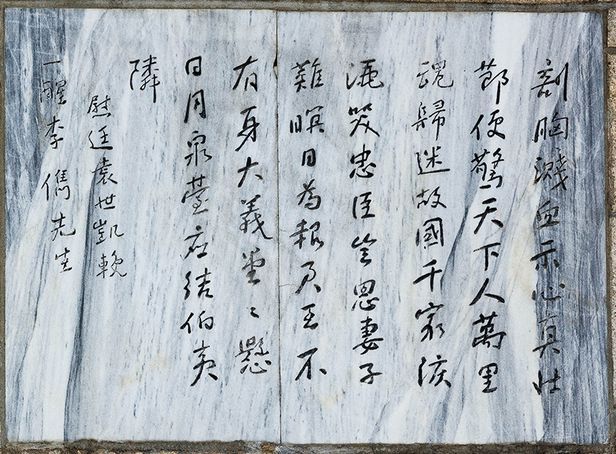 剖胸濺血示心真壯
節便驚天下人萬里
魂歸迷故國千家淚
灑哭忠臣豈思妻子
難暝目為報君王不
有身大義堂〻懸
日月泉臺応結伯夷
隣
慰廷袁世凱輓
一醒李儁先生